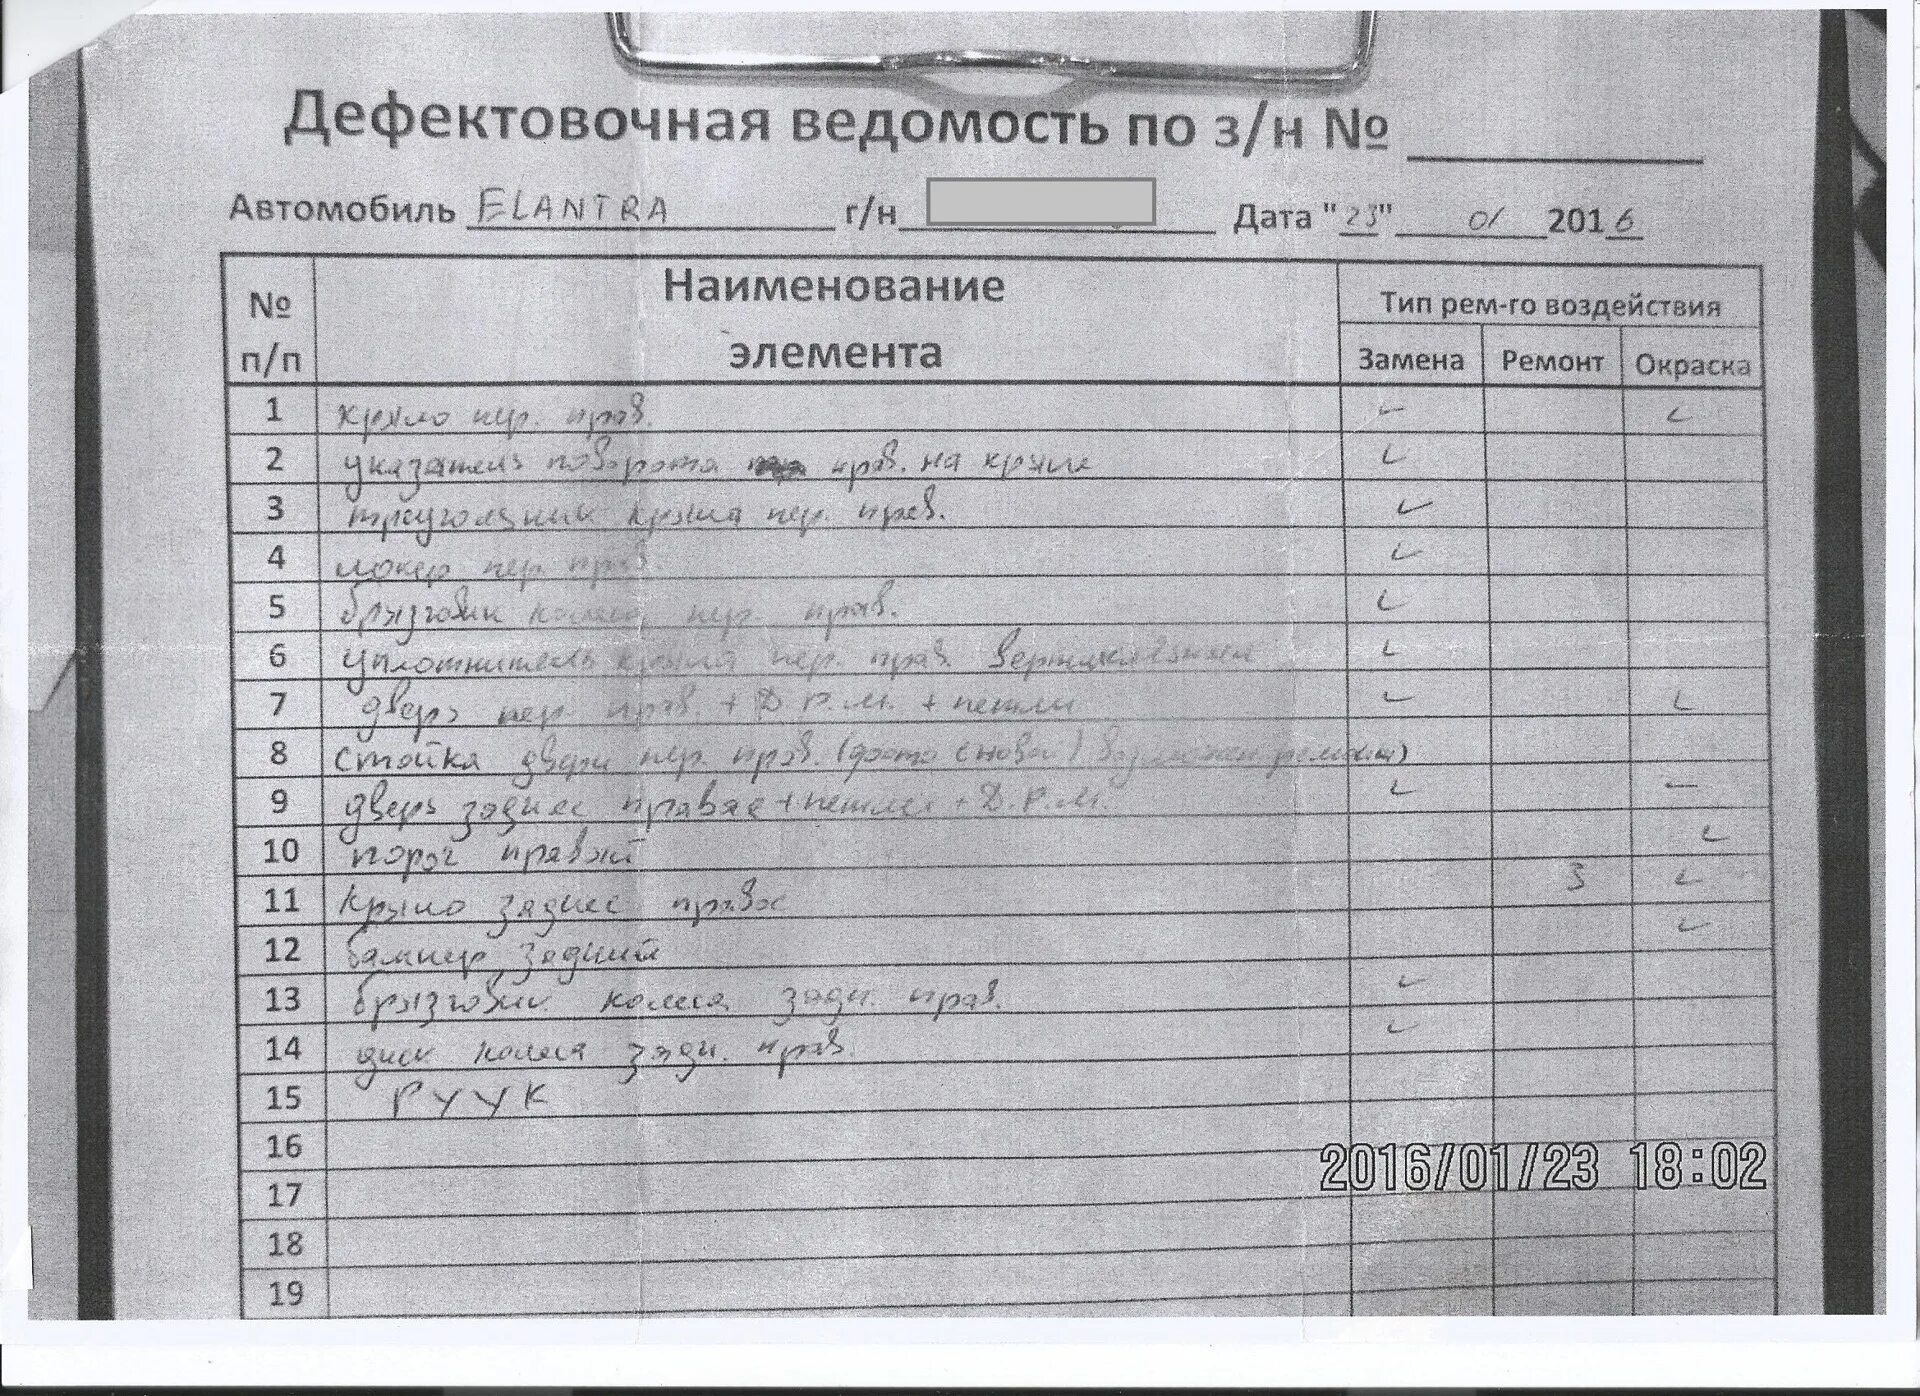 Дефектовочная ведомость по з/н №
Автомобиль ELANTRA г/н Дата "23" 01 2016
№ п/п Наименование элемента Тип рем-го воздействия
Замена Ремонт Окраска
1 крыло пер. прав. ✓ ✓
2 указатель поворота прав. на крыле ✓
3 треугольник крыла пер. прав. ✓
4 локер пер. прав. ✓
5 брызговик колеса пер. прав. ✓
6 уплотнитель крыла пер. прав. ✓
7 дверь пер. прав. + Д.Р.М. + петли ✓ ✓
8 стойка двери пер. прав. (фото с новой) возможен ремонт)
9 дверь заднее правае + петли + Д.Р.М. ✓ —
10 порог правый ✓
11 крыло заднее правое 3 ✓
12 бампер задний ✓
13 брызговик колеса задн. прав. ✓
14 диск колеса задн. прав. ✓
15 РУУК
16
17
18
19
2016/01/23 18:02